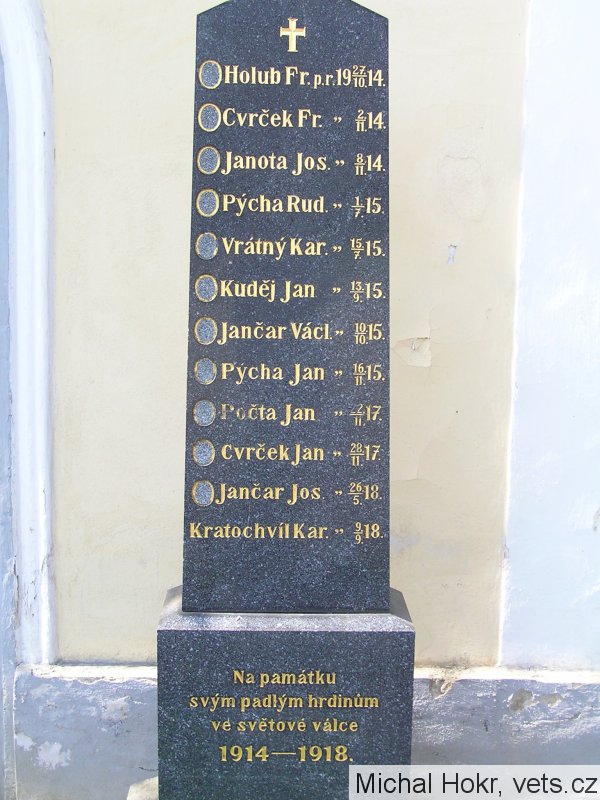 Holub Fr. p.r. 19 27/10. 14.
Cvrček Fr. „ 2/11. 14.
Janota Jos. „ 8/11. 14.
Pýcha Rud. „ 1/7. 15.
Vrátný Kar. „ 15/7. 15.
Kuděj Jan „ 13/9. 15.
Jančar Václ. „ 10/10. 15.
Pýcha Jan „ 16/11. 15.
Počta Jan „ 2/11. 17.
Cvrček Jan „ 28/11. 17.
Jančar Jos. „ 26/5. 18.
Kratochvíl Kar. „ 9/9. 18.
Na památku
svým padlým hrdinům
ve světové válce
1914—1918.
Michal Hokr, vets.cz